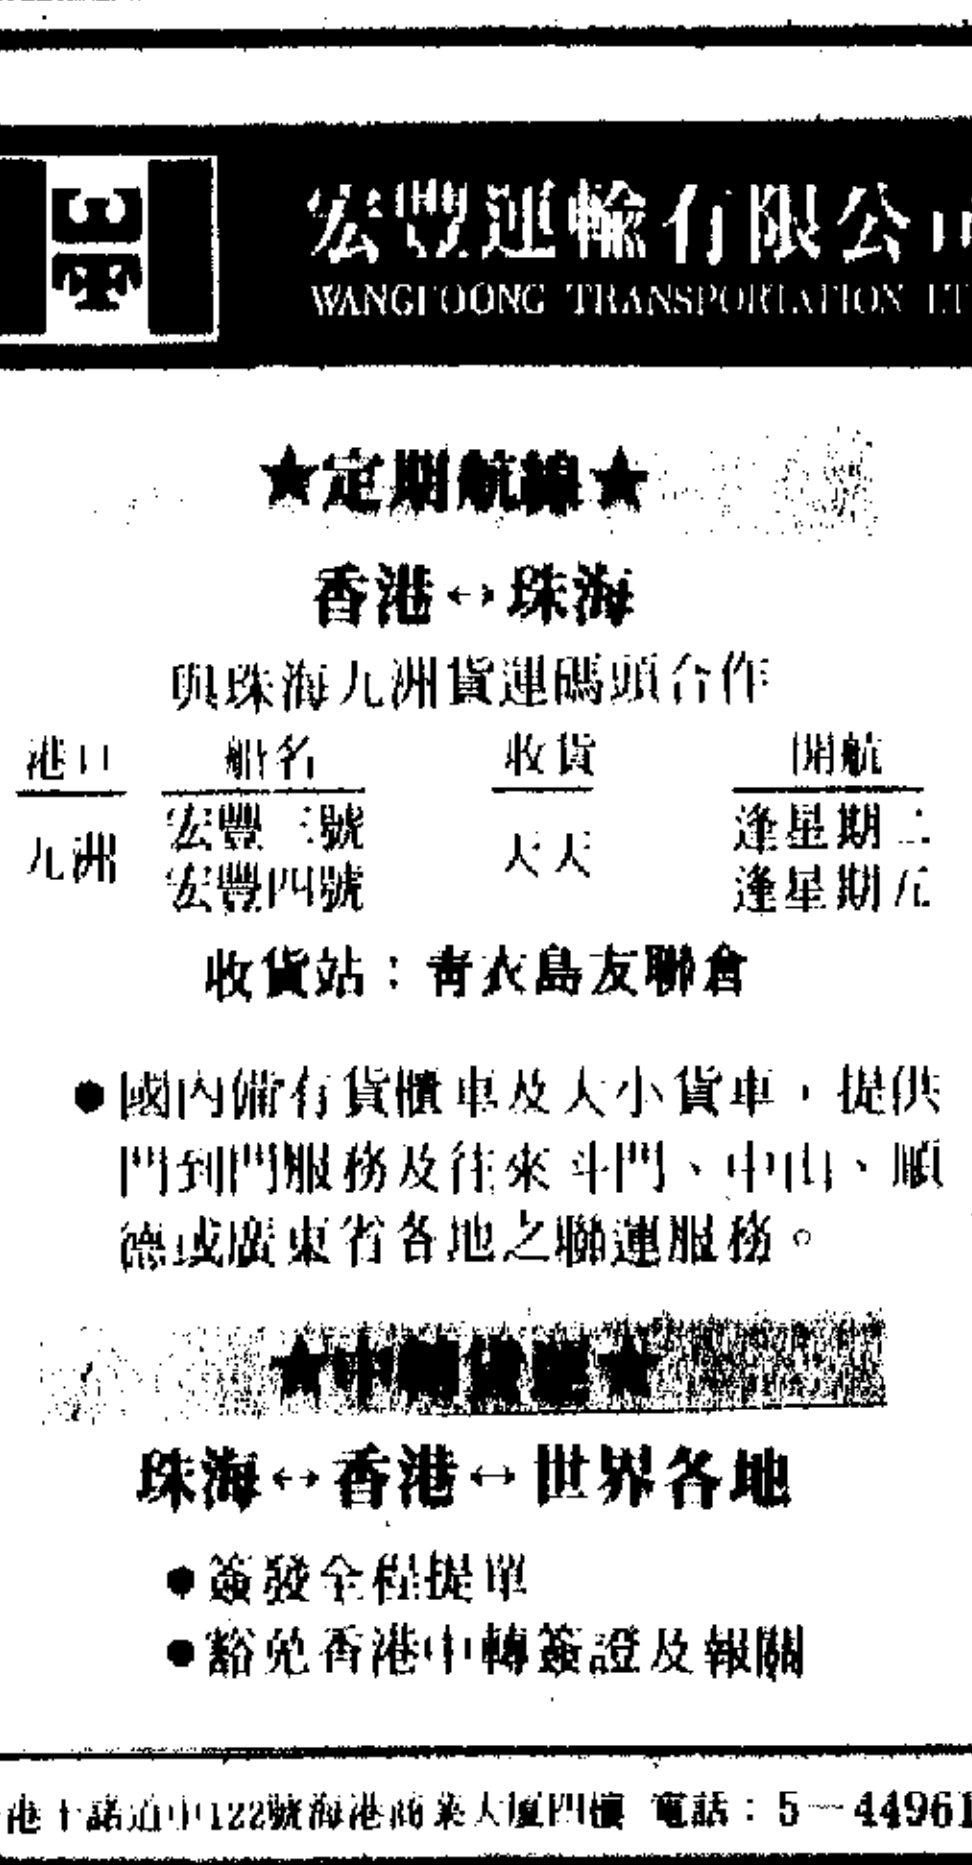 宏豐運輸有限公司
WANGFOONG TRANSPORTATION LT
★定期航線★
香港↔珠海
與珠海九洲貨運碼頭合作
港口 船名 收貨 開航
九洲 宏豐三號 天天 逢星期二
宏豐四號 逢星期五
收貨站：青衣島友聯倉
●國內備有貨櫃車及大小貨車，提供
門到門服務及往來斗門、中山、順
德或廣東省各地之聯運服務。
★中轉貨運★
珠海↔香港↔世界各地
●簽發全程提單
●豁免香港中轉簽證及報關
港干諾道中122號海港商業大廈四樓 電話：5—44961